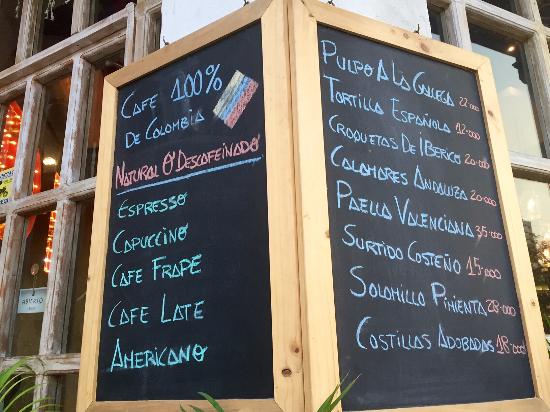 CAFE 100%
DE COLOMBIA
NATURAL O' DESCAFEINADO
ESPRESSO
CAPUCCINO
CAFE FRAPÉ
CAFE LATE
AMERICANO
PULPO A LA GALLEGA 22.000
TORTILLA ESPAÑOLA 12.000
CROQUETAS DE IBERICO 20.000
CALAMARES ANDALUZA 20.000
PAELLA VALENCIANA 35.000
SURTIDO COSTEÑO 15.000
SOLOMILLO PIMIENTA 28.000
COSTILLAS ADOBADAS 18.000
ABIERTO